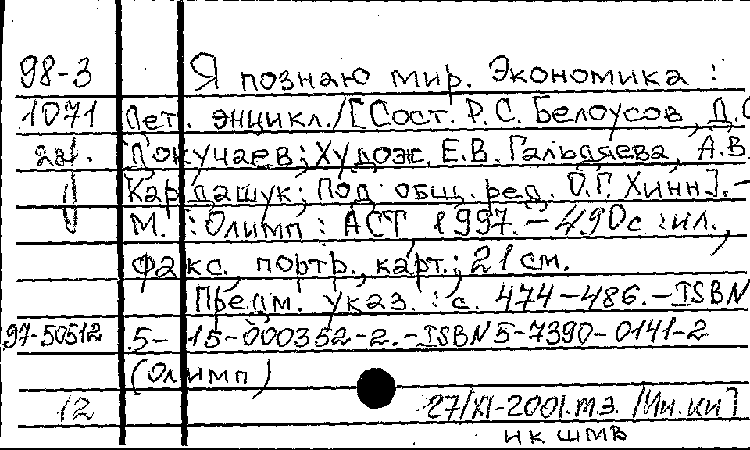 98-3 Я познаю мир. Экономика :
1071 Дет. энцикл./[Сост. Р.С. Белоусов, Д.С
2эк. Докучаев; Худож. Е.В. Гальдяева, А.В.
Кардашук; Под общ. ред. О.Г. Хинн]. -
М. : Олимп : АСТ 1997. - 490с : ил.,
факс. портр., карт.; 21 см.
Предм. указ. : с. 474-486. - ISBN
97-50512 5-15-000352-2. - ISBN 5-7390-0141-2
(Олимп)
12 27/XI-2001. тэ.
нк шмв